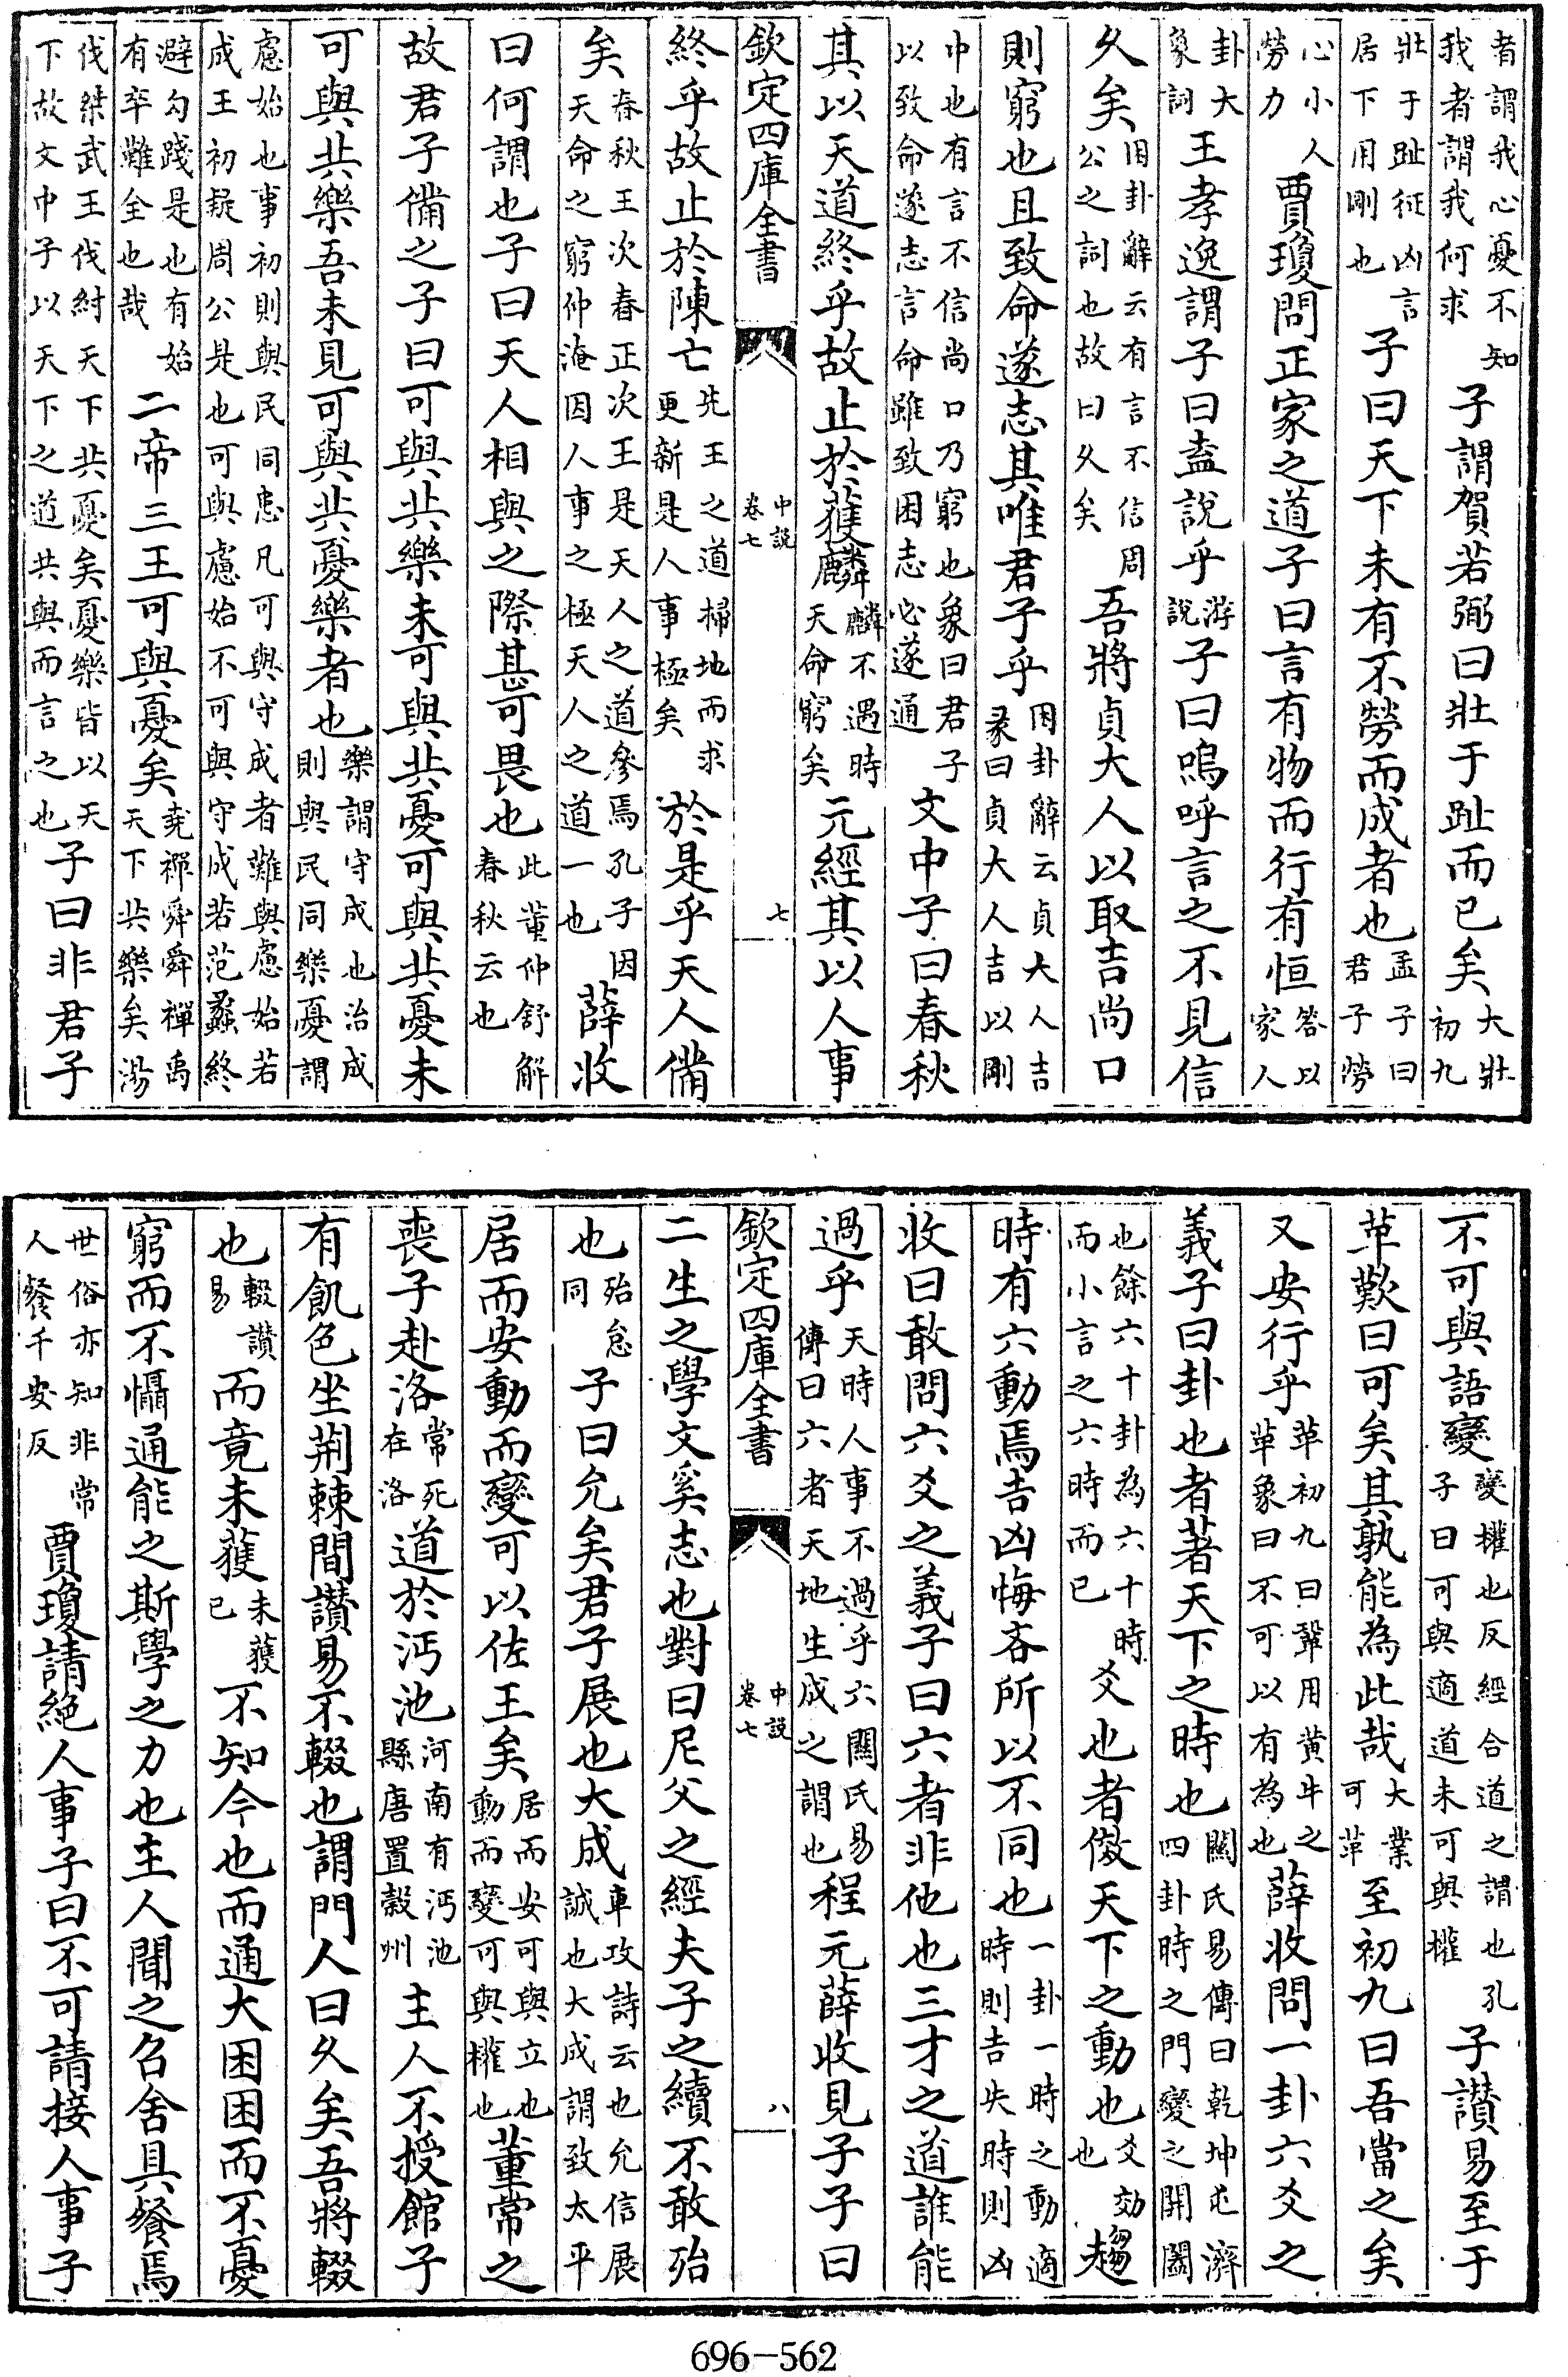 者謂我心憂不知我者謂我何求子謂賀若弼曰壯于趾而已矣大壯初九
壯于趾征凶言居下用剛也子曰天下未有不勞而成者也孟子曰君子勞
心小人勞力賈瓊問正家之道子曰言有物而行有恒答以家人
卦大象詞王孝逸謂子曰盍說乎游說子曰嗚呼言之不見信
久矣困卦辭云有言不信周公之詞也故曰久矣吾將貞大人以取吉尚口
則窮也且致命遂志其唯君子乎困卦辭云貞大人吉彖曰貞大人吉以剛
中也有言不信尚口乃窮也象曰君子以致命遂志言命雖致困志必遂通文中子曰春秋
其以天道終乎故止於獲麟麟不遇時天命窮矣元經其以人事
欽定四庫全書 中說 卷七 七
終乎故止於陳亡先王之道掃地而求更新是人事極矣於是乎天人備
矣春秋王次春正次王是天人之道參焉孔子因天命之窮仲淹因人事之極天人之道一也薛收
曰何謂也子曰天人相與之際甚可畏也此董仲舒解春秋云也
故君子備之子曰可與共樂未可與共憂可與共憂未
可與共樂吾未見可與共憂樂者也樂謂守成也治成則與民同樂憂謂
慮始也事初則與民同患凡可與守成者難與慮始若成王初疑周公是也可與慮始不可與守成若范蠡終
避勾踐是也有始有卒難全也哉二帝三王可與憂矣堯禪舜舜禪禹天下共樂矣湯
伐桀武王伐紂天下共憂矣憂樂皆以天下故文中子以天下之道共與而言之也子曰非君子
不可與語變變權也反經合道之謂也孔子曰可與適道未可與權子讚易至于
革歎曰可矣其孰能為此哉大業可革至初九曰吾當之矣
又安行乎革初九曰鞏用黃牛之革象曰不可以有為也薛收問一卦六爻之
義子曰卦也者著天下之時也關氏易傳曰乾坤屯濟四卦時之門變之開闔
也餘六十卦為六十時而小言之六時而已爻也者傚天下之動也爻効也趨
時有六動焉吉凶悔吝所以不同也一卦一時之動適時則吉失時則凶
收曰敢問六爻之義子曰六者非他也三才之道誰能
過乎天時人事不過乎六關氏易傳曰六者天地生成之謂也程元薛收見子子曰
欽定四庫全書 中說 卷七 八
二生之學文奚志也對曰尼父之經夫子之續不敢殆
也殆怠同子曰允矣君子展也大成車攻詩云也允信展誠也大成謂致太平
居而安動而變可以佐王矣居而安可與立也動而變可與權也董常之
喪子赴洛常死在洛道於沔池河南有沔池縣唐置穀州主人不授館子
有飢色坐荊棘間讚易不輟也謂門人曰久矣吾將輟
也輟讚易而竟未獲未獲已不知今也而通大困困而不憂
窮而不懾通能之斯學之力也主人聞之召舍具餐焉
世俗亦知非常人餐千安反賈瓊請絕人事子曰不可請接人事子
696-562